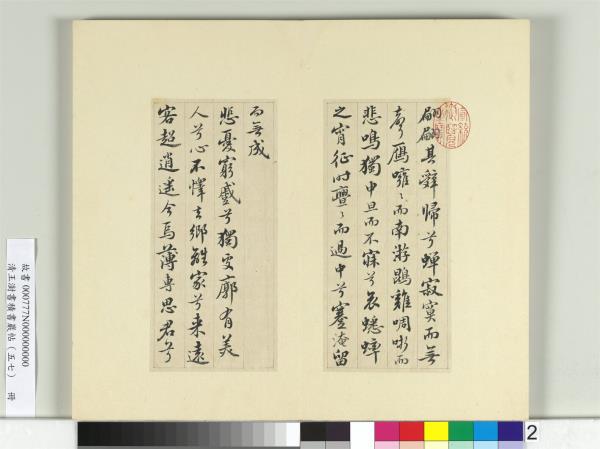 翩翩其辭歸兮蟬寂寞而無
聲鴈噰〻而南游鵾雞啁哳而
悲鳴獨申旦而不寐兮哀蟋蟀
之宵征时亹〻而過中兮蹇淹留
而無成
悲憂窮慼兮獨處廓有美
人兮心不懌去鄉離家兮来遠
客超逍遥今焉薄專思君兮
故書 000777N000000000
清王澍書積書巖帖(五七) 冊
2